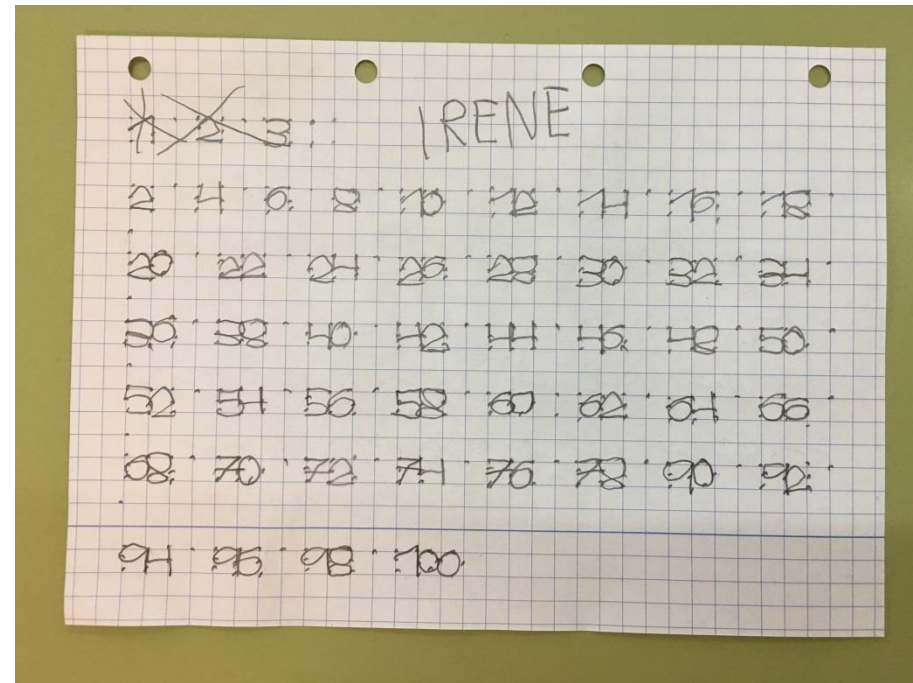 1 2 3 IRENE
2 4 6 8 10 12 14 16 18
20 22 24 26 28 30 32 34
36 38 40 42 44 46 48 50
52 54 56 58 60 62 64 66
68 70 72 74 76 78 90 92
94 96 98 100